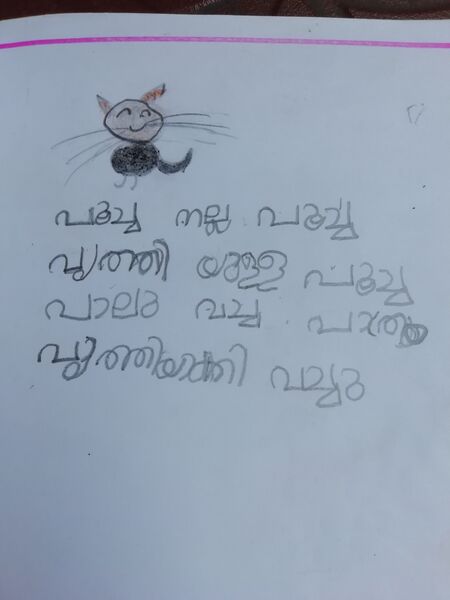 പൂച്ച നല്ല പൂച്ച
വൃത്തി യുള്ള പൂച്ച
പാലു വച്ച പാത്രം
വൃത്തിയാക്കി വച്ചു